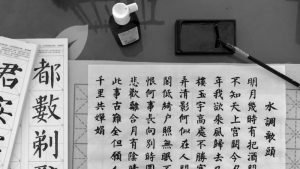 水調歌頭
明月幾時有把酒問
不知天上宮闕今夕
年我欲乘風歸去又
樓玉宇高處不勝寒
弄清影何似在人間
閣低綺戶照無眠不
恨何事長向別時圓
悲歡離合月有陰晴
此事古難全但願人
千里共嬋娟
都數剃
君安